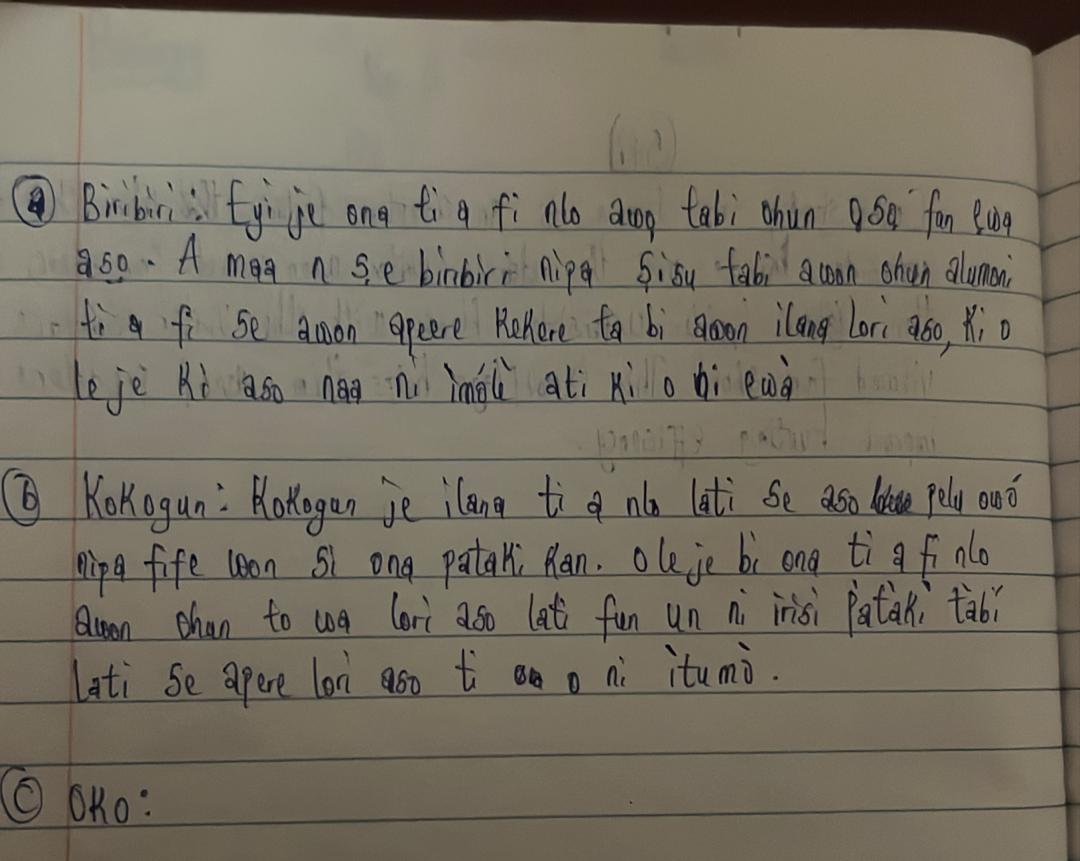 (a) Biribiri: Eyi je ona ti a fi nlo awọ tabi ohun ọsọ fun ẹwa
aṣo. A maa n ṣe biribiri nipa ṣisu tabi awon ohun alumoni
ti a fi se awon apeere kekere ta bi awon ilana lori aso, ki o
le je ki aso naa ni imọ́lẹ̀ ati ki o ni ewà
(b) Kokogun: Kokogun je ilana ti a nlo lati se aso pelu owó
nipa fife won si ona pataki kan. O le je bi ona ti a fi nlo
awon ohun to wa lori aso lati fun un ni irisi pàtàkì tàbí
lati se apere lori aso ti o ni ìtumò.
(c) OKO: